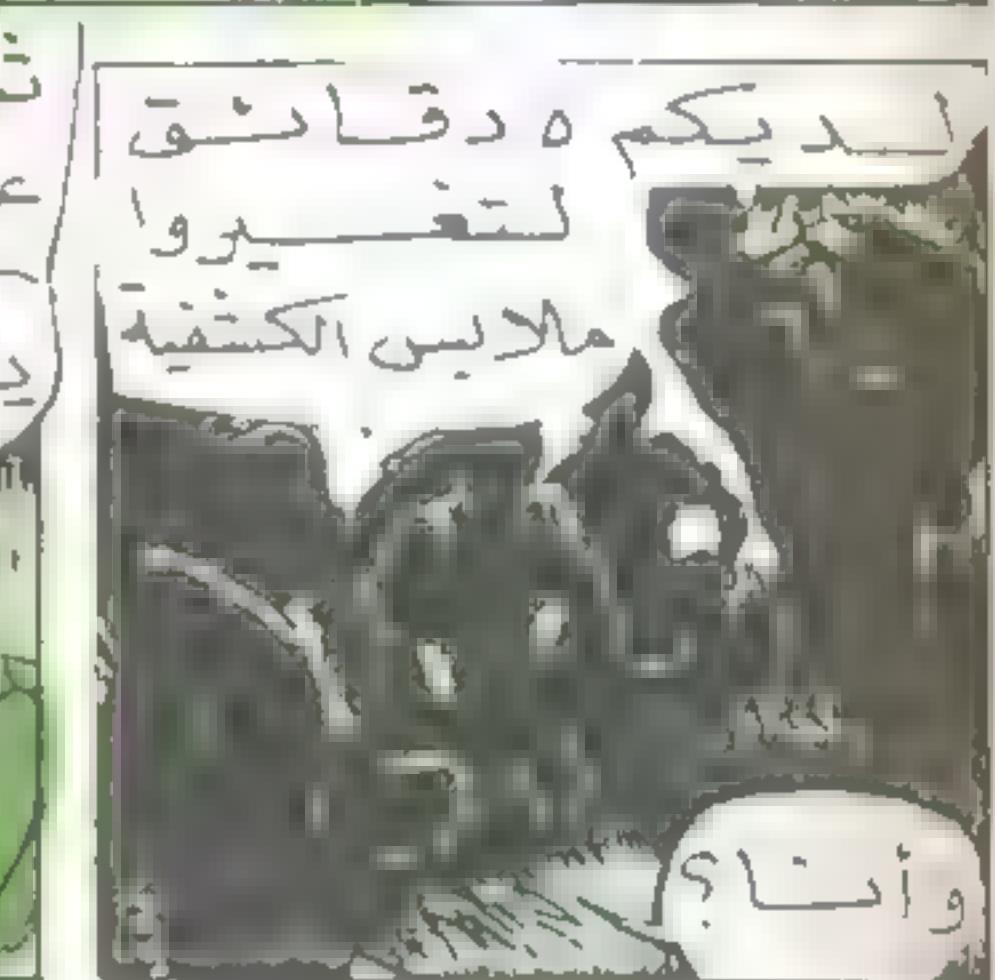 لديكم ٥ دقائق
لتغيروا
ملابس الكشفية
وأنا؟